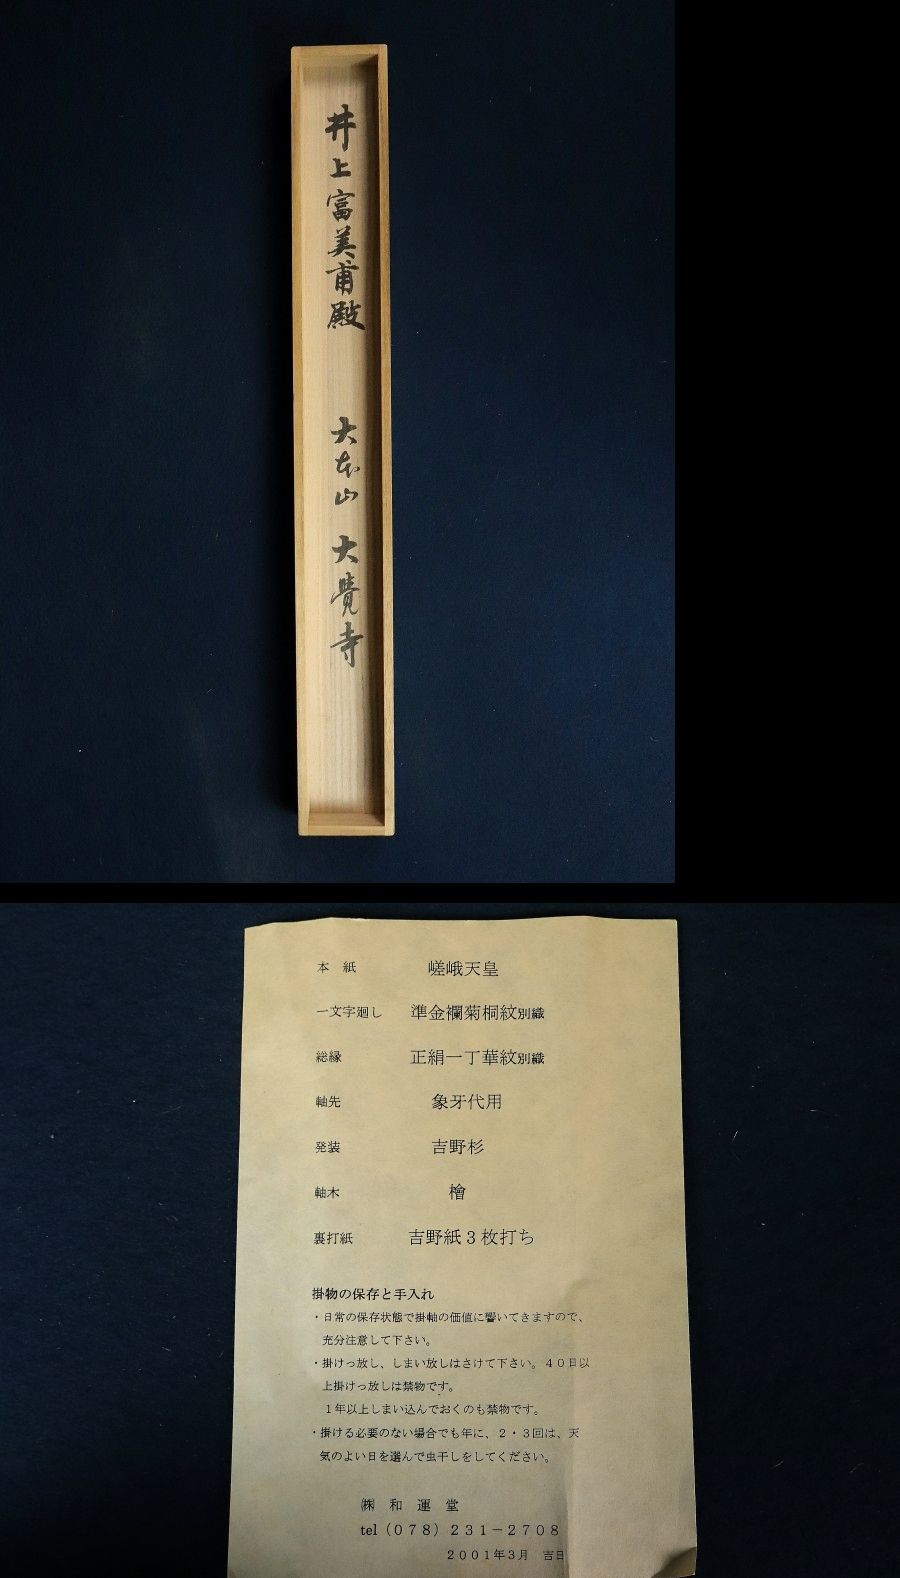 井上富美甫殿
大本山 大覺寺
本 紙 嵯峨天皇
一文字廻し 準金襴菊桐紋別織
総縁 正絹一丁華紋別織
軸先 象牙代用
発装 吉野杉
軸木 檜
裏打紙 吉野紙3枚打ち
掛物の保存と手入れ
・日常の保存状態で掛軸の価値に響いてきますので、
充分注意して下さい。
・掛けっ放し、しまい放しはさけて下さい。40日以
上掛けっ放しは禁物です。
1年以上しまい込んでおくのも禁物です。
・掛ける必要のない場合でも年に、2・3回は、天
気のよい日を選んで虫干しをしてください。
㈱ 和 運 堂
tel(078)231-2708
2001年3月 吉日